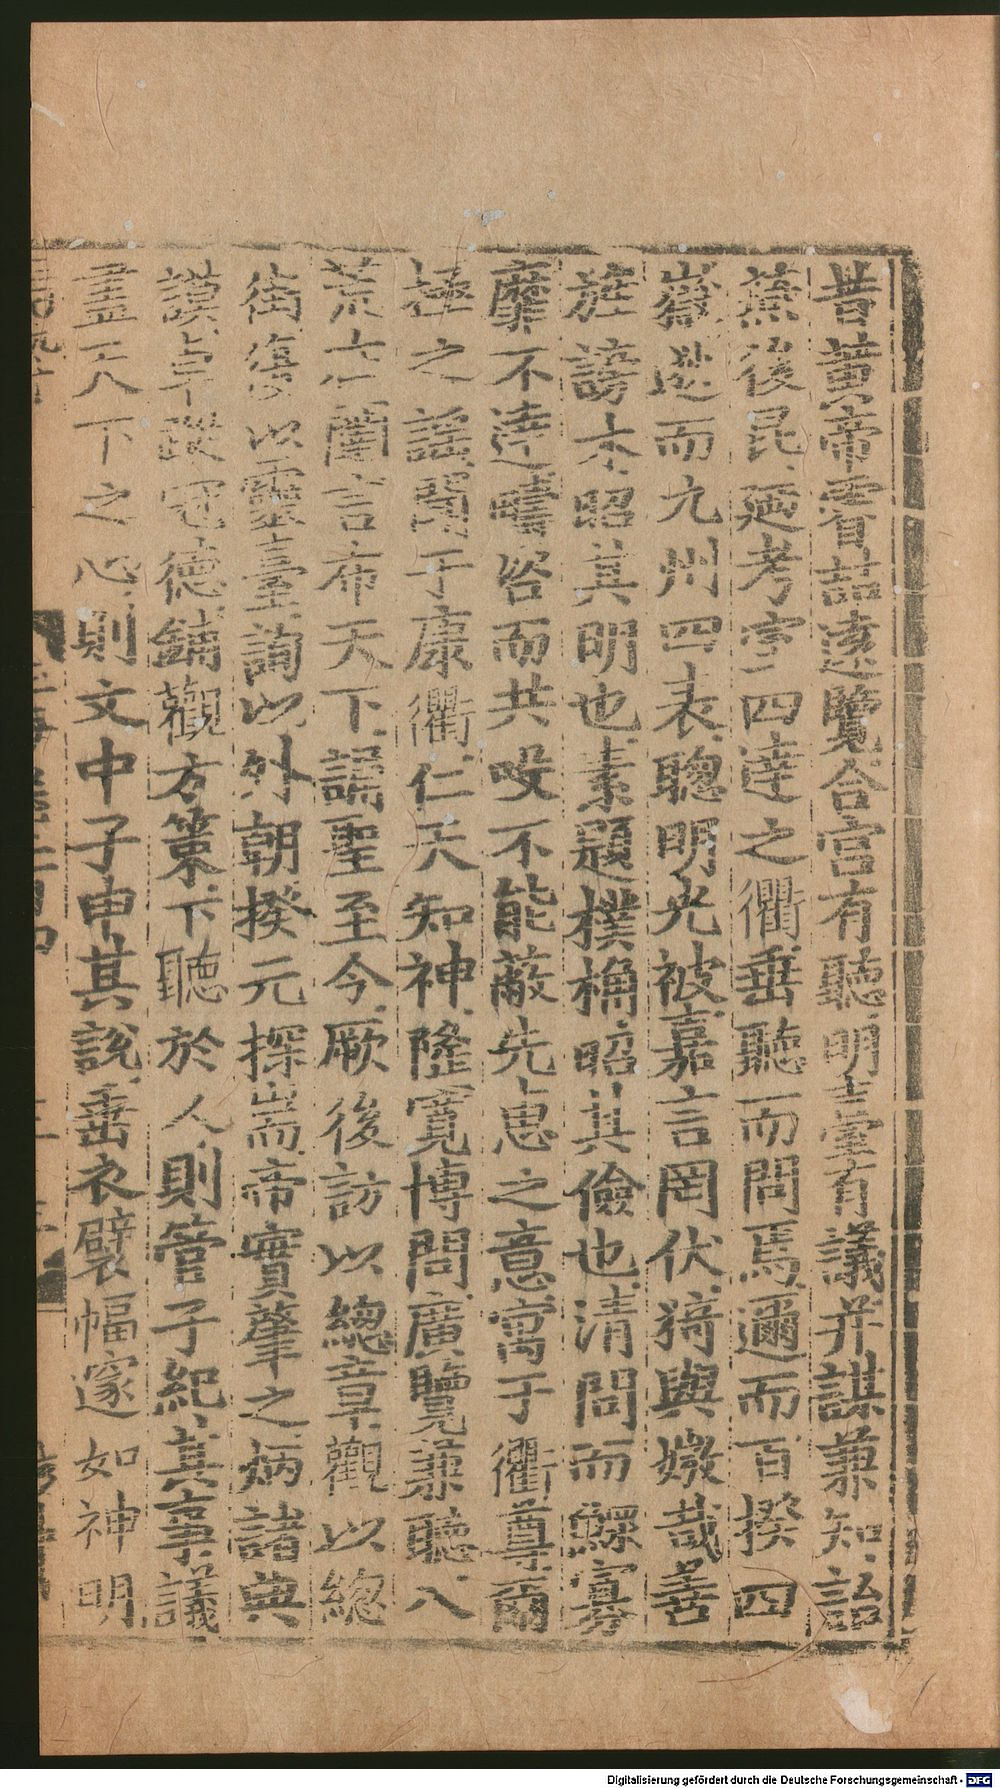 昔黃帝賫喆遠覽合宮有聽明臺有議并謀兼知詒
燕後昆延考宇三四達之衢垂聽而問馬邇而百揆四
嶽逖而九州四表聰明光被嘉言罔伏猗與媺哉善
旌謗木昭其明也素題樸桷昭其儉也清問而鰥寡
靡不達疇咨而共吺不能蔽先恵之意寓于衢尊爾
極之謠聞于康衢仁天知神隆寬博問廣覽兼聽八
荒六闔言布天下謂聖至今厥後訪以總章觀以總
街
以靈臺誦以外朝揆元探耑帝實肇之炳諸典
謨卓
冠德鏑觀方策下聽於人則管子紀其事議
盡天下之心則文中子申其說垂衣襞幅邃如神明
Digitalisierung gefördert durch die Deutsche Forschungsgemeinschaft - DFG